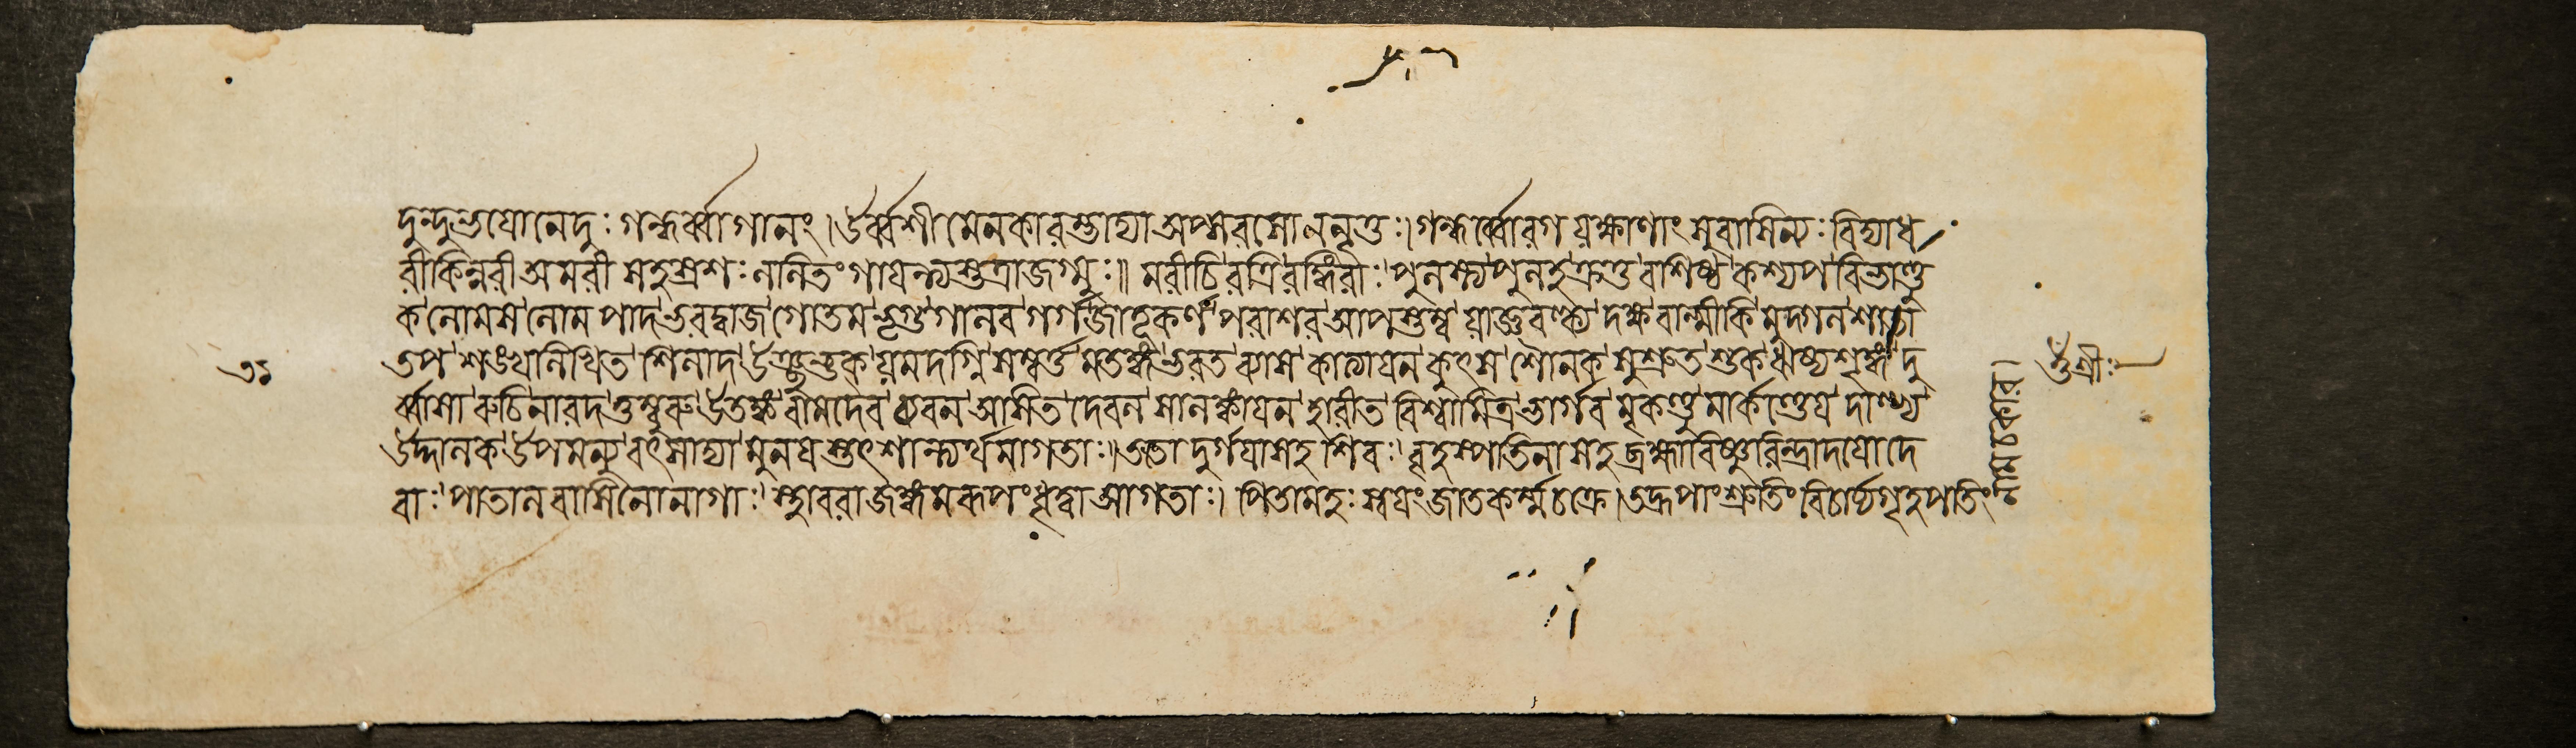 দুন্দুভয়োনেদুঃ গন্ধর্ব্বাগানং।উর্ব্বশীমেনকারম্ভাদ্যাঅপ্সরসোননৃতুঃ।গন্ধর্ব্বোরগযক্ষাণাং সুবাসিন্যঃবিদ্যাধ
রীকিন্নরীঅমরী সহস্রশঃ ললিতংগায়ন্ত্যস্তত্রাজগ্মুঃ॥ মরীচিরত্রিরঙ্গিরাঃ'পুলস্ত্য'পুলহ'ক্রতু'বাশিষ্ঠ'কশ্যপ'বিভাণ্ডু
ক'লোমস'লোমপাদ'ভরদ্বাজ'গোতম'ভৃগু'গালব'গর্গ'জাতূকর্ণ'পরাশর'আপস্তম্ব'যাজ্ঞবল্ক্য'দক্ষ'বাল্মীকি'মুদ্গল'শাতা
তপ'শঙ্খ'লিখিত'শিলাদ'উঞ্ছভুক'যমদগ্নি'সম্বর্ত্ত'মতঙ্গ'ভরত'ব্যাস'কাত্যায়ন'কুৎস'শৌনক'সুশ্রুত'শুক'ঋষ্যশৃঙ্গ'দু
র্ব্বাসা'রুচি'নারদ'তুম্বুরু'উতঙ্ক'বামদেব'চ্যবন'আসিত'দেবল'সালঙ্কায়ন'হারীত'বিশ্বামিত্র'ভার্গব'মৃকণ্ডু'মার্কণ্ডেয়'দাল্ভ্য'
উদ্দালক'উপমন্যু'বৎসাদ্যা'মুনয়স্তৎশান্ত্যর্থমাগতাঃ॥ততো দুর্গয়াসহ শিবঃ'বৃহস্পতিনাসহ ব্রহ্মাবিষ্ণুরিন্দ্রাদয়োদে
বাঃ'পাতালবাসিনোনাগাঃ'স্থাবরাজঙ্গমরূপংধৃত্বাআগতাঃ। পিতামহঃস্বয়ংজাতকর্ম্মচক্রে।তদ্রূপাংশ্রুতিংবিচার্য্যগৃহপতিং
তিনামচকার।
ওঁশ্রীঃ